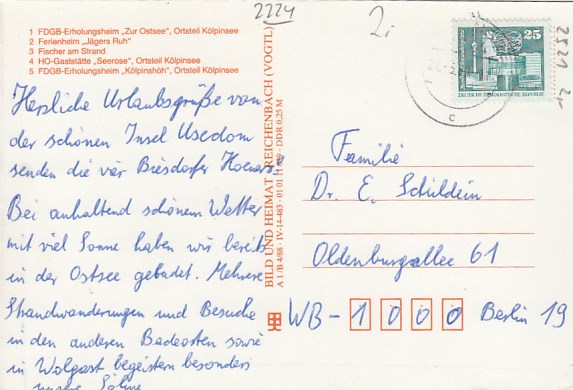 2224
2.
2521 2r
1 FDGB-Erholungsheim „Zur Ostsee", Ortsteil Kölpinsee
2 Ferienheim „Jägers Ruh"
3 Fischer am Strand
4 HO-Gaststätte „Seerose", Ortsteil Kölpinsee
5 FDGB-Erholungsheim „Kölpinshöh", Ortsteil Kölpinsee
25
DEUTSCHE DEMOKRATISCHE REPUBLIK
c
Herzliche Urlaubsgrüße von
der schönen Insel Usedom
senden die vier Biesdorfer
Bei anhaltend schönem Wetter
mit viel Sonne haben wir bereits
in der Ostsee gebadet. Mehrere
Strandwanderungen und Besuche
in den anderen Badeorten sowie
in Wolgast begeistern besonders
unsere Söhne
BILD UND HEIMAT REICHENBACH (VOGTL)
A 1/B 4/88 · IV-14-483 · 01 01 DDR 0,25 M
Familie
Dr. E. Schildein
Oldenburgallee 61
WB- 1 0 0 0 Berlin 19